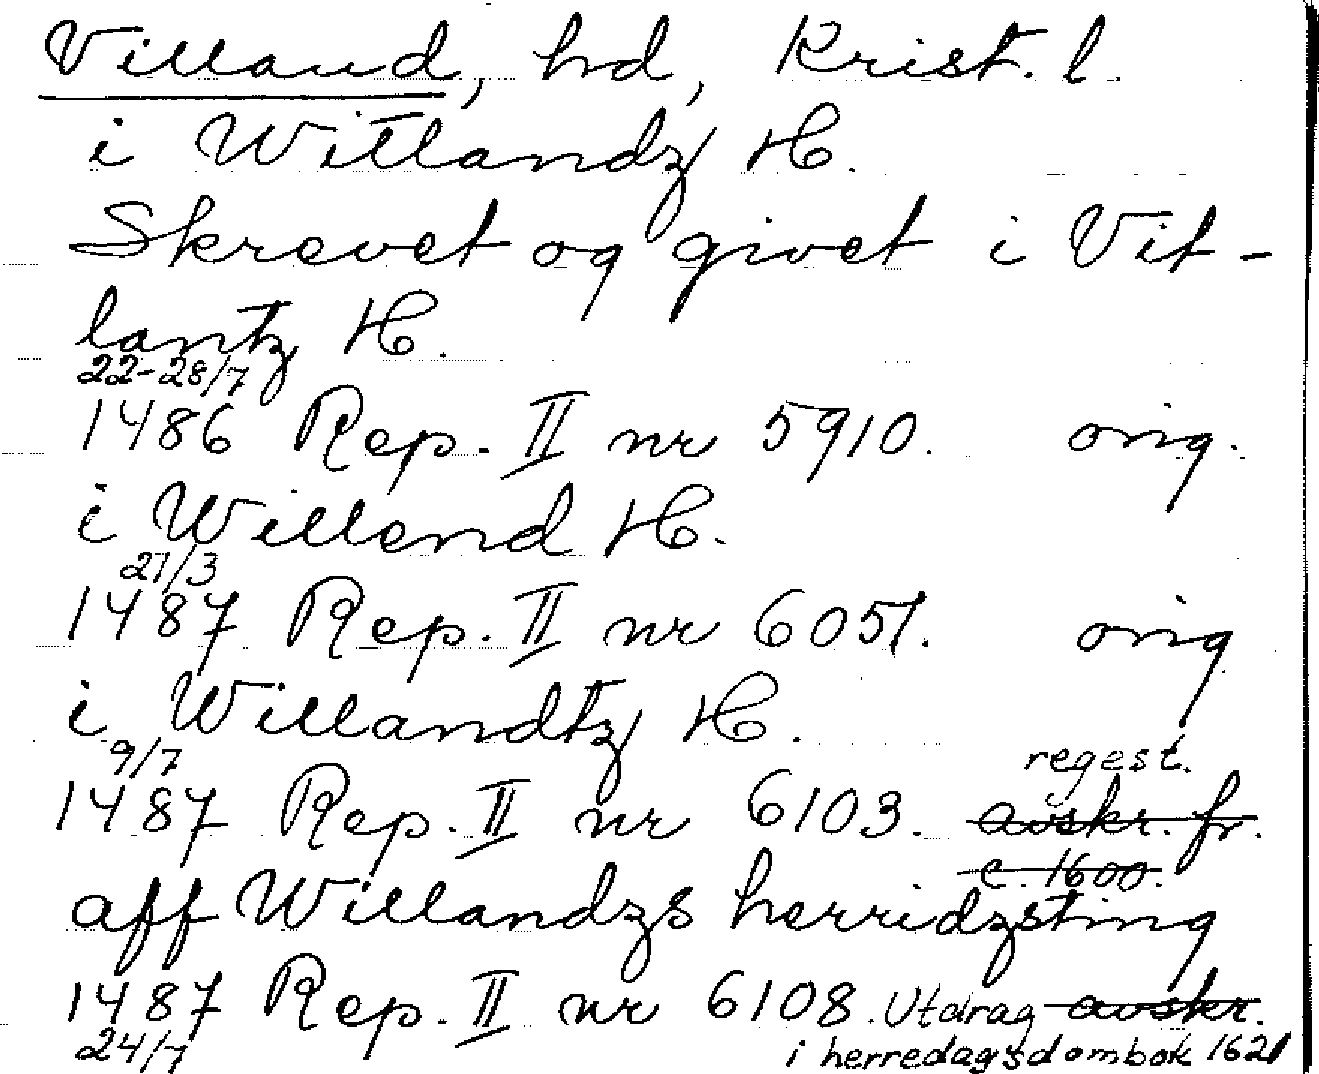 Villand, hd, Krist. l.
i Witlandz H.
Skrevet og givet i Vit-
lantz H.
22-28/7
1486 Rep. II nr 5910. orig.
i Willend H.
21/3
1487 Rep. II nr 6051. orig
i Willandtz H.
9/7 regest.
1487 Rep. II nr 6103. avskr. fr.
c. 1600.
aff Willandzs herridzsting
1487 Rep. II nr 6108. Utdrag avskr.
24/7 i herredagsdombok 1621